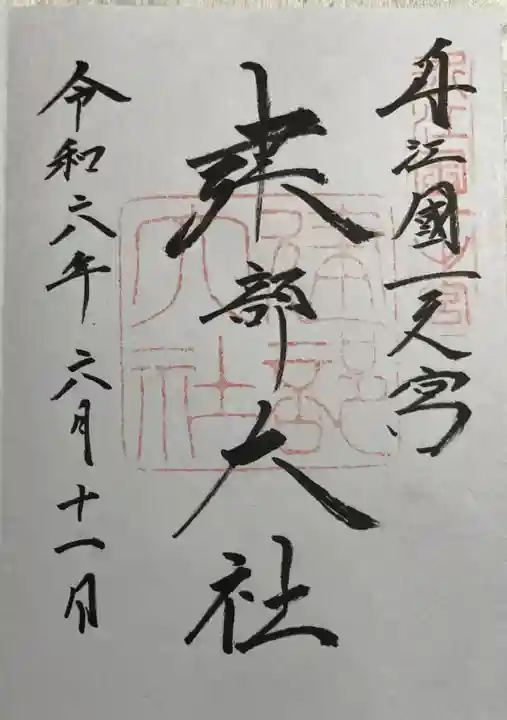 近江國一之宮
建部大社
令和六年 六月十一日
建部
大社